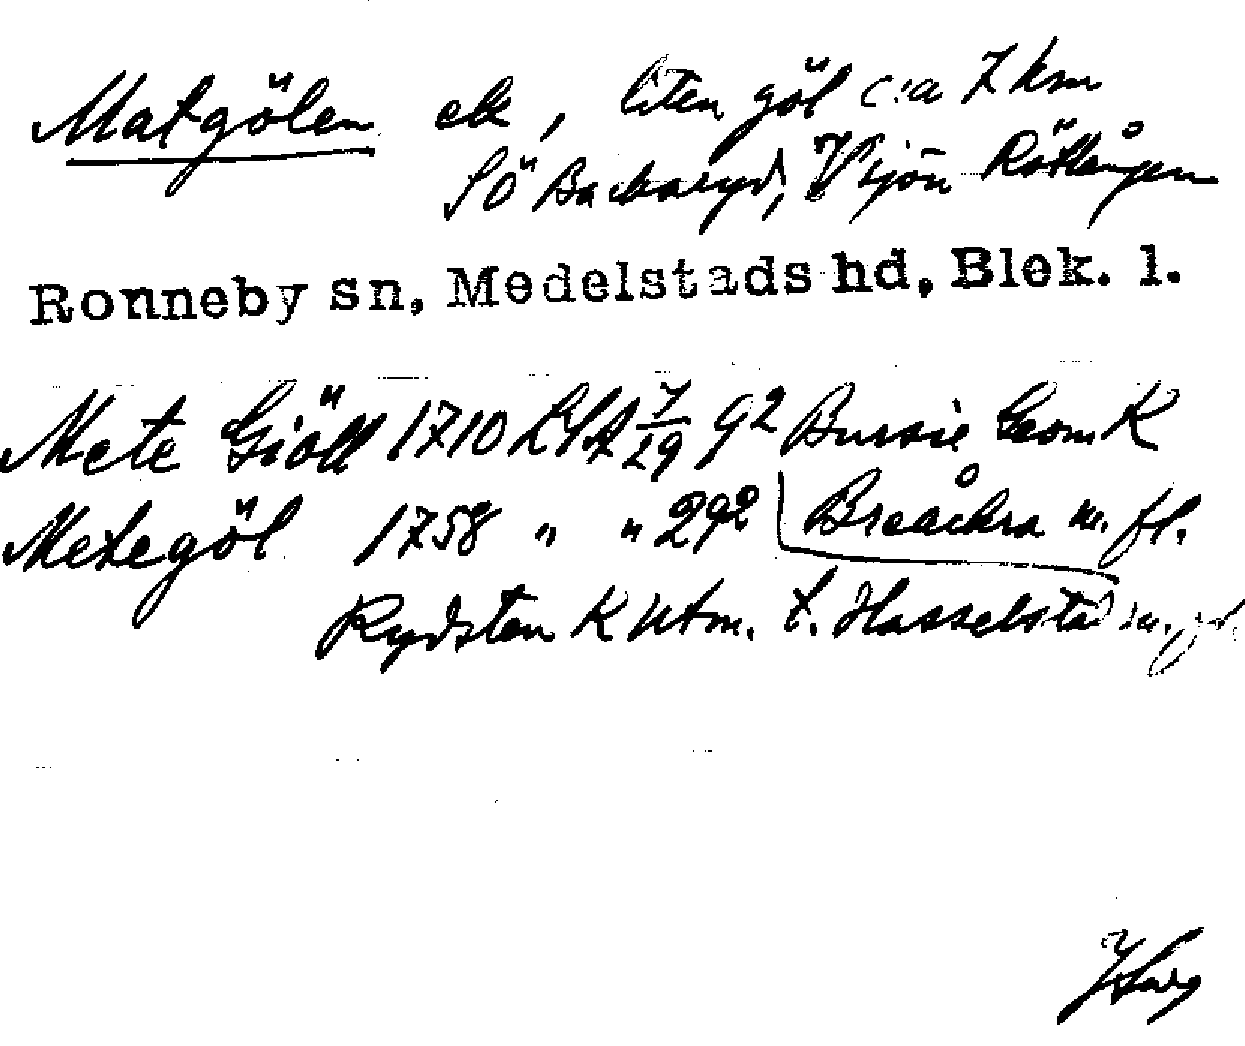 Matgölen ek, liten göl c:a 7 km
SÖ Backaryd, V sjön Rötlången
Ronneby sn, Medelstads hd, Blek. l.
Mete Giöll 1710 LSA 7/29 92 Bursie Geom K
Metegöl 1758 " " 292 Breåkra m. fl.
Rydsten K Utm. t. Hasselstad m. fl.